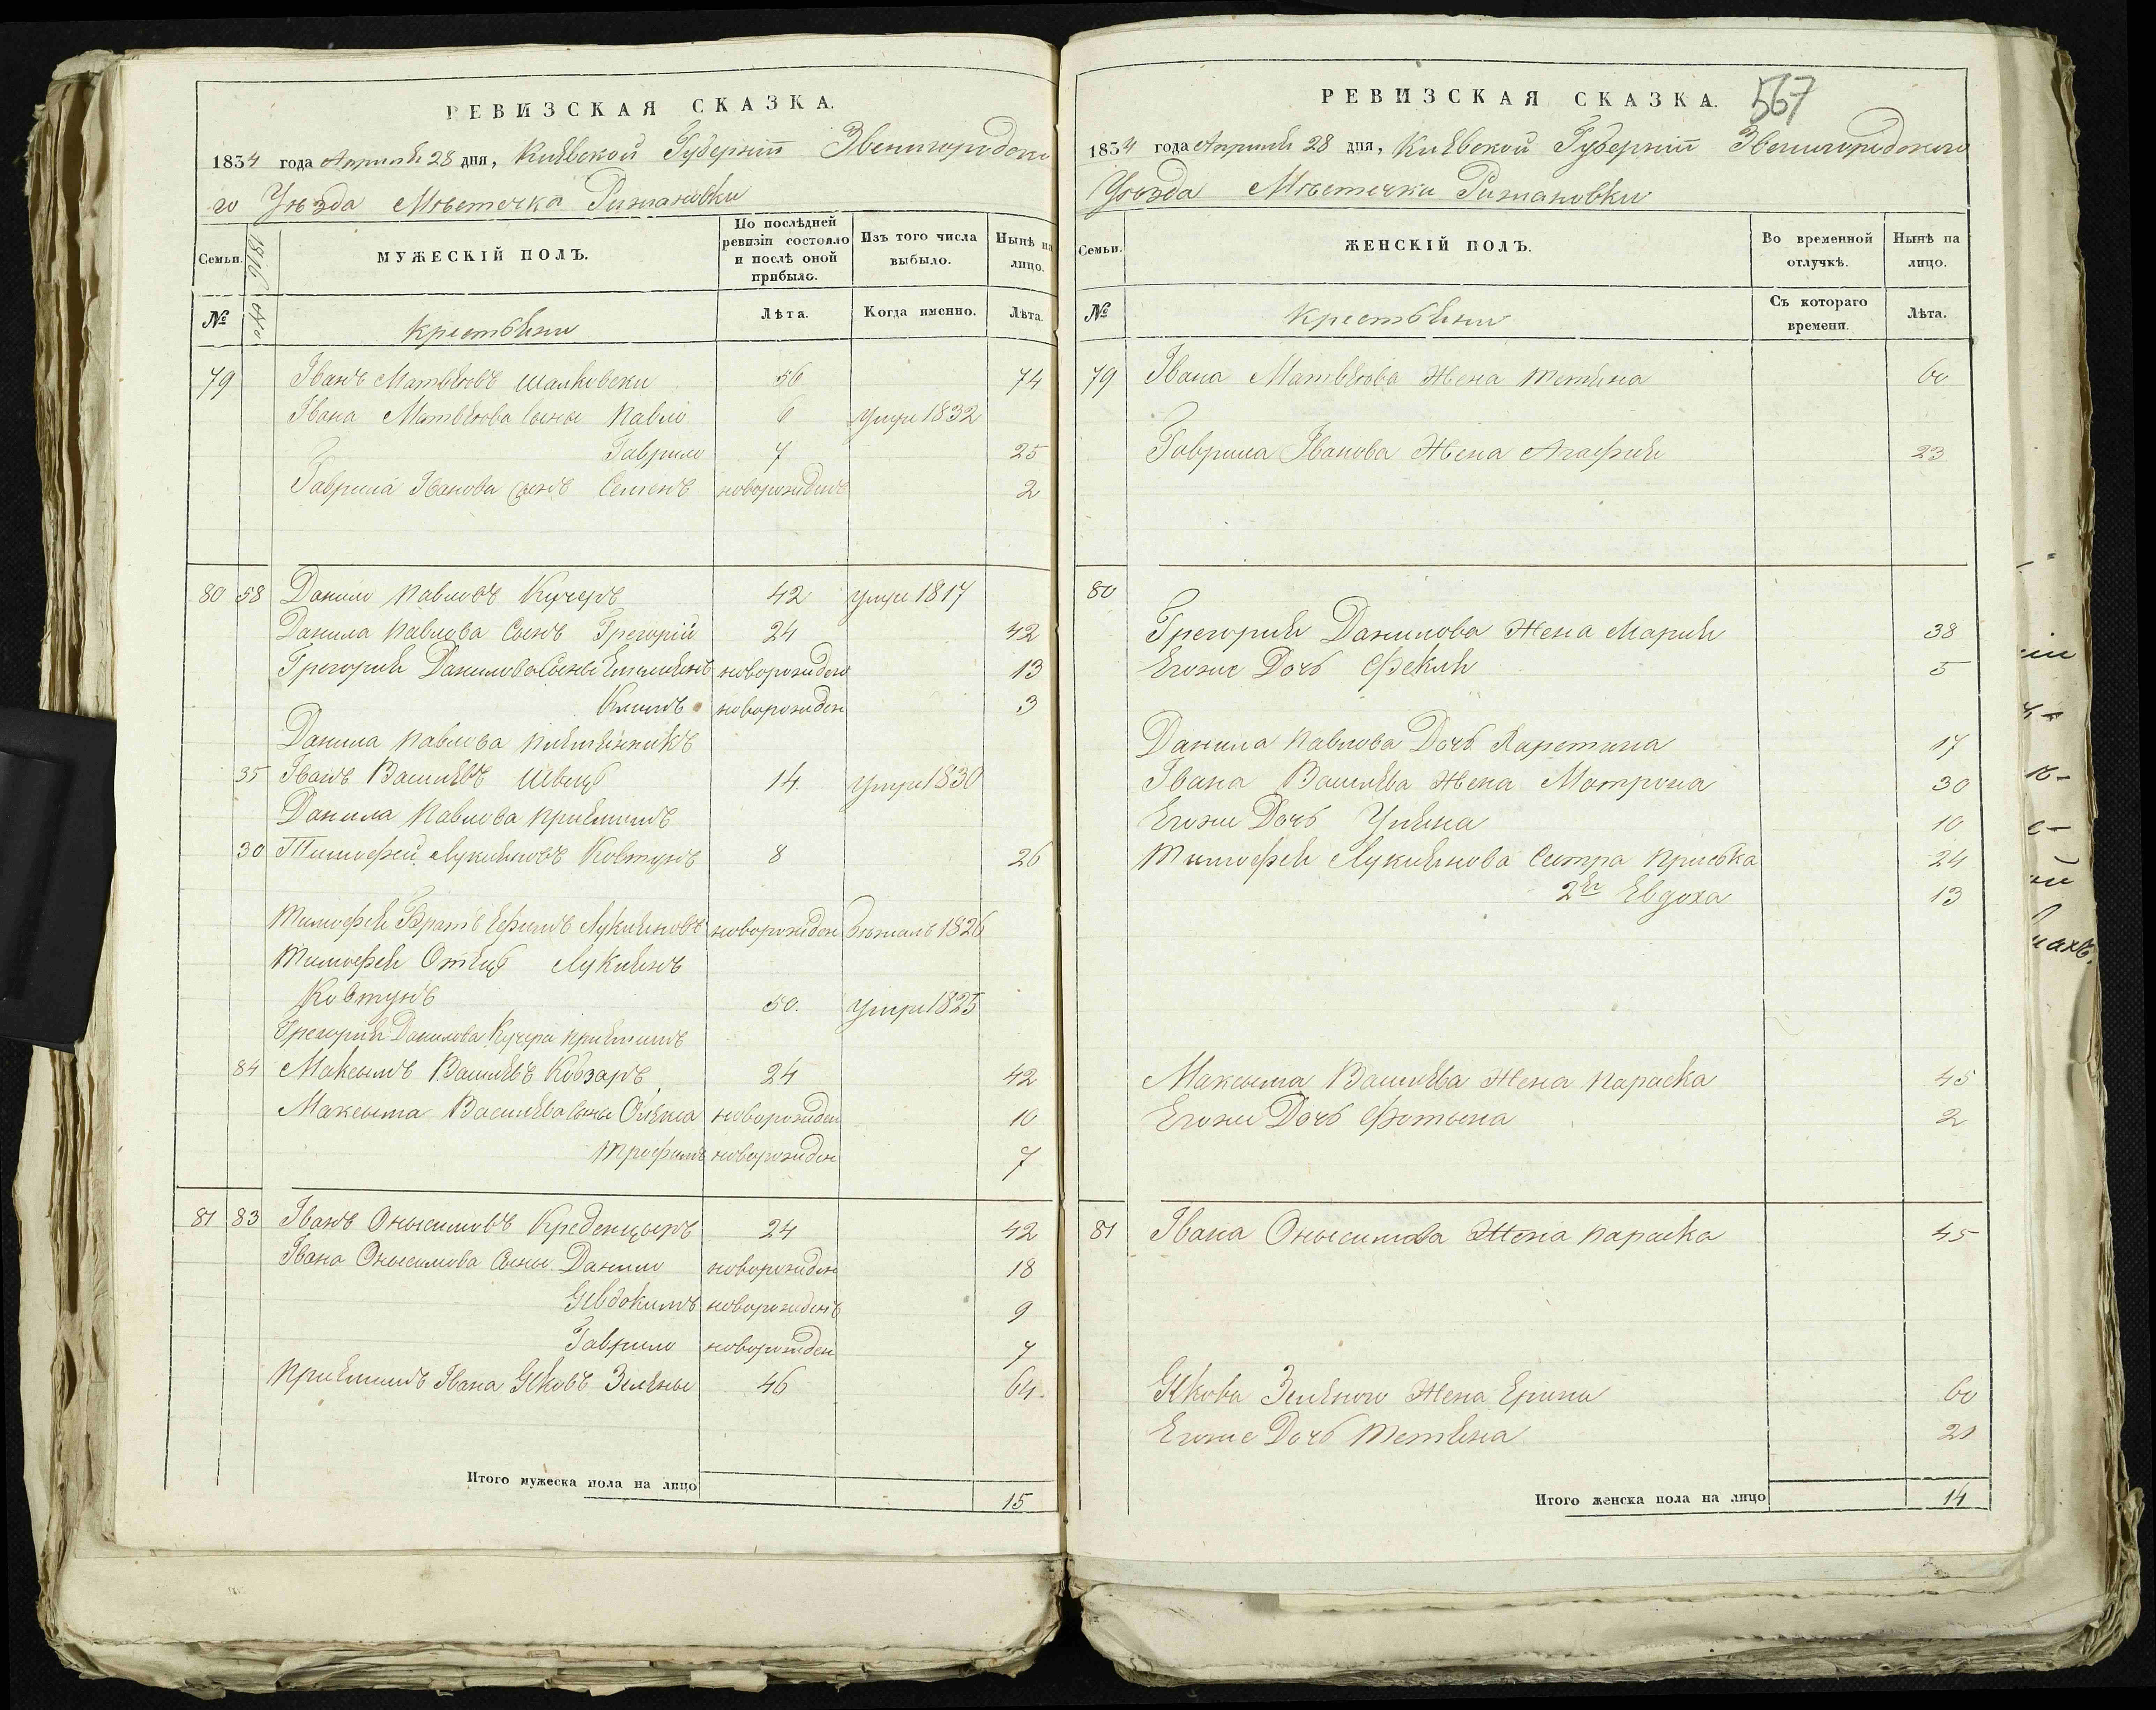 РЕВИЗСКАЯ СКАЗКА.
1834 года Априля 28 дня, Киевской Губернии Звенигородско
го Уезда Местечка Рижановки
Семьи.
1816 года
МУЖЕСКІЙ ПОЛЪ.
По послѣдней ревизіи состояло и послѣ оной прибыло.
Изъ того числа выбыло.
Нынѣ на лицо.
№
крестьяни
Лѣта.
Когда именно.
Лѣта.
79 Іванъ Матвѣювъ 56 74
Івана Матвѣюва сыны Павло 6 умре 1832
Гаврило 7 25
Гаврила Іванова сынъ Семенъ новорожденъ 2
80 58 Данило Павловъ Кучеръ 42 умре 1817
Данила Павлова сынъ Грегорій 24 42
Грегорія Данилова сыны Емиліянъ новорожден 13
Климъ новорожден 3
Данила Павлова племѣнникъ
35 Іванъ Василѣвъ Швецъ 14. умре 1830
Данила Павлова приѣмышъ
30 Тимофей Лукияновъ Ковтунъ 8 26
Тимофея Братъ Ефимъ Лукияновъ новорожден бѣжалъ 1826
Тимофея Отецъ Лукиянъ
Ковтунъ 50. умре 1825
Грегорія Данилова Кучера приѣмышъ
84 Максымъ Василѣвъ Кобзаръ 24 42
Максыма Василѣва сыны Олекса новорожден 10
Трофимъ новорожден 7
81 83 Іванъ Онысимовъ Креденцыръ 24 42
Івана Онысимова сыны Данило новорожден 18
Явдокимъ новорожденъ 9
Гаврило новорожден 7
Приѣмышъ Івана Яковъ Зелены 46 64.
Итого мужеска пола на лицо 15
РЕВИЗСКАЯ СКАЗКА. 567
1834 года Априля 28 дня, Киевской Губернии Звенигородского
Уезда Местечки Рижановки
Семьи.
ЖЕНСКІЙ ПОЛЪ.
Во временной отлучкѣ.
Нынѣ на лицо.
№
крестьяни
Съ котораго времени.
Лѣта.
79 Івана Матвѣюва Жена Тетяна 60
Гаврила Іванова Жена Агафия 23
80
Грегория Данилова Жена Мария 38
Егоже Дочь Фекля 5
Данила Павлова Дочь 17
Івана Василѣва Жена Мотрона 30
Егоже Дочь Уляна 10
Тимофея Лукиянова Сестра Приська 24
2я Евдоха 13
Максыма Василѣва Жена Параска 45
Егоже Дочь Фотына 2
81 Івана Онысимова Жена Параска 45
Якова Зеленого Жена Ерина 60
Егоже Дочь Тетяна 21
Итого женска пола на лицо 14